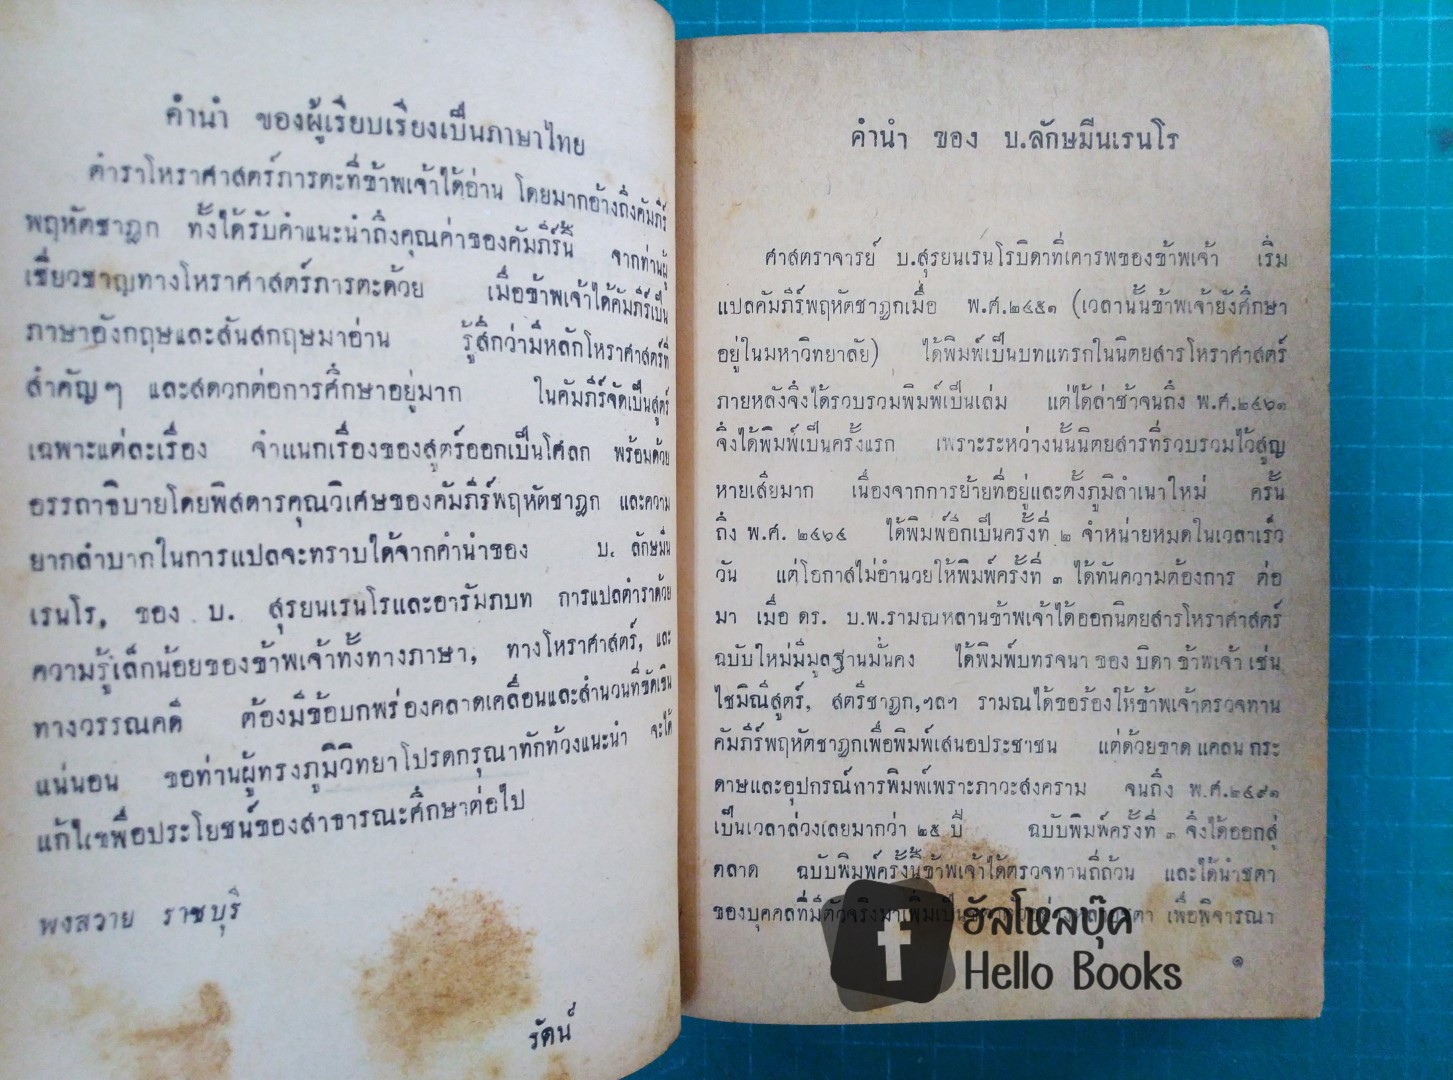 คำนำ ของผู้เรียบเรียงเป็นภาษาไทย
ตำราโหราศาสตร์ภารตะที่ข้าพเจ้าได้อ่าน โดยมากอ้างถึงคัมภีร์
พฤหัตชาฎก ทั้งได้รับคำแนะนำถึงคุณค่าของคัมภีร์นี้ จากท่านผู้
เชี่ยวชาญทางโหราศาสตร์ภารตะด้วย เมื่อข้าพเจ้าได้คัมภีร์เป็น
ภาษาอังกฤษและสันสกฤษมาอ่าน รู้สึกว่ามีหลักโหราศาสตร์ที่
สำคัญๆ และสดวกต่อการศึกษาอยู่มาก ในคัมภีร์จัดเป็นสูตร์
เฉพาะแต่ละเรื่อง จำแนกเรื่องของสูตร์ออกเป็นโศลก พร้อมด้วย
อรรถาธิบายโดยพิสดารคุณวิเศษของคัมภีร์พฤหัตชาฎก และความ
ยากลำบากในการแปลจะทราบได้จากคำนำของ บ. ลักษมีน
เรนโร, ของ บ. สุรยนเรนโรและอารัมภบท การแปลตำราด้วย
ความรู้เล็กน้อยของข้าพเจ้าทั้งทางภาษา, ทางโหราศาสตร์, และ
ทางวรรณคดี ต้องมีข้อบกพร่องคลาดเคลื่อนและสำนวนที่ขัดเขิน
แน่นอน ขอท่านผู้ทรงภูมิวิทยาโปรดกรุณาทักท้วงแนะนำ จะได้
แก้ไขเพื่อประโยชน์ของสาธารณะศึกษาต่อไป
พงสวาย ราชบุรี
รัตน์
คำนำ ของ บ.ลักษมีนเรนโร
ศาสตราจารย์ บ.สุรยนเรนโรบิดาที่เคารพของข้าพเจ้า เริ่ม
แปลคัมภีร์พฤหัตชาฎกเมื่อ พ.ศ.๒๔๕๑ (เวลานั้นข้าพเจ้ายังศึกษา
อยู่ในมหาวิทยาลัย) ได้พิมพ์เป็นบทแทรกในนิตยสารโหราศาสตร์
ภายหลังจึงได้รวบรวมพิมพ์เป็นเล่ม แต่ได้ล่าช้าจนถึง พ.ศ.๒๔๖๑
จึงได้พิมพ์เป็นครั้งแรก เพราะระหว่างนั้นนิตยสารที่รวบรวมไว้สูญ
หายเสียมาก เนื่องจากการย้ายที่อยู่และตั้งภูมิลำเนาใหม่ ครั้น
ถึง พ.ศ. ๒๔๖๔ ได้พิมพ์อีกเป็นครั้งที่ ๒ จำหน่ายหมดในเวลาเร็ว
วัน แต่โอกาสไม่อำนวยให้พิมพ์ครั้งที่ ๓ ได้ทันความต้องการ ต่อ
มา เมื่อ ดร. บ.พ.รามณหลานข้าพเจ้าได้ออกนิตยสารโหราศาสตร์
ฉบับใหม่มีมูลฐานมั่นคง ได้พิมพ์บทรจนา ของ บิดา ข้าพเจ้า เช่น
ไชมิณีสูตร์, สตรีชาฎก,ฯลฯ รามณได้ขอร้องให้ข้าพเจ้าตรวจทาน
คัมภีร์พฤหัตชาฎกเพื่อพิมพ์เสนอประชาชน แต่ด้วยขาด แคลน กระ
ดาษและอุปกรณ์การพิมพ์เพราะภาวะสงคราม จนถึง พ.ศ.๒๔๙๑
เป็นเวลาล่วงเลยมากว่า ๒๕ ปี ฉบับพิมพ์ครั้งที่ ๓ จึงได้ออกสู่
ตลาด ฉบับพิมพ์ครั้งนี้ข้าพเจ้าได้ตรวจทานถี่ถ้วน และได้นำชตา
ของบุคคลที่มีตัวจริงมาเพิ่มเป็น เพื่อพิจารณา
๑
f
ฮัลโหลบุ๊ค
Hello Books